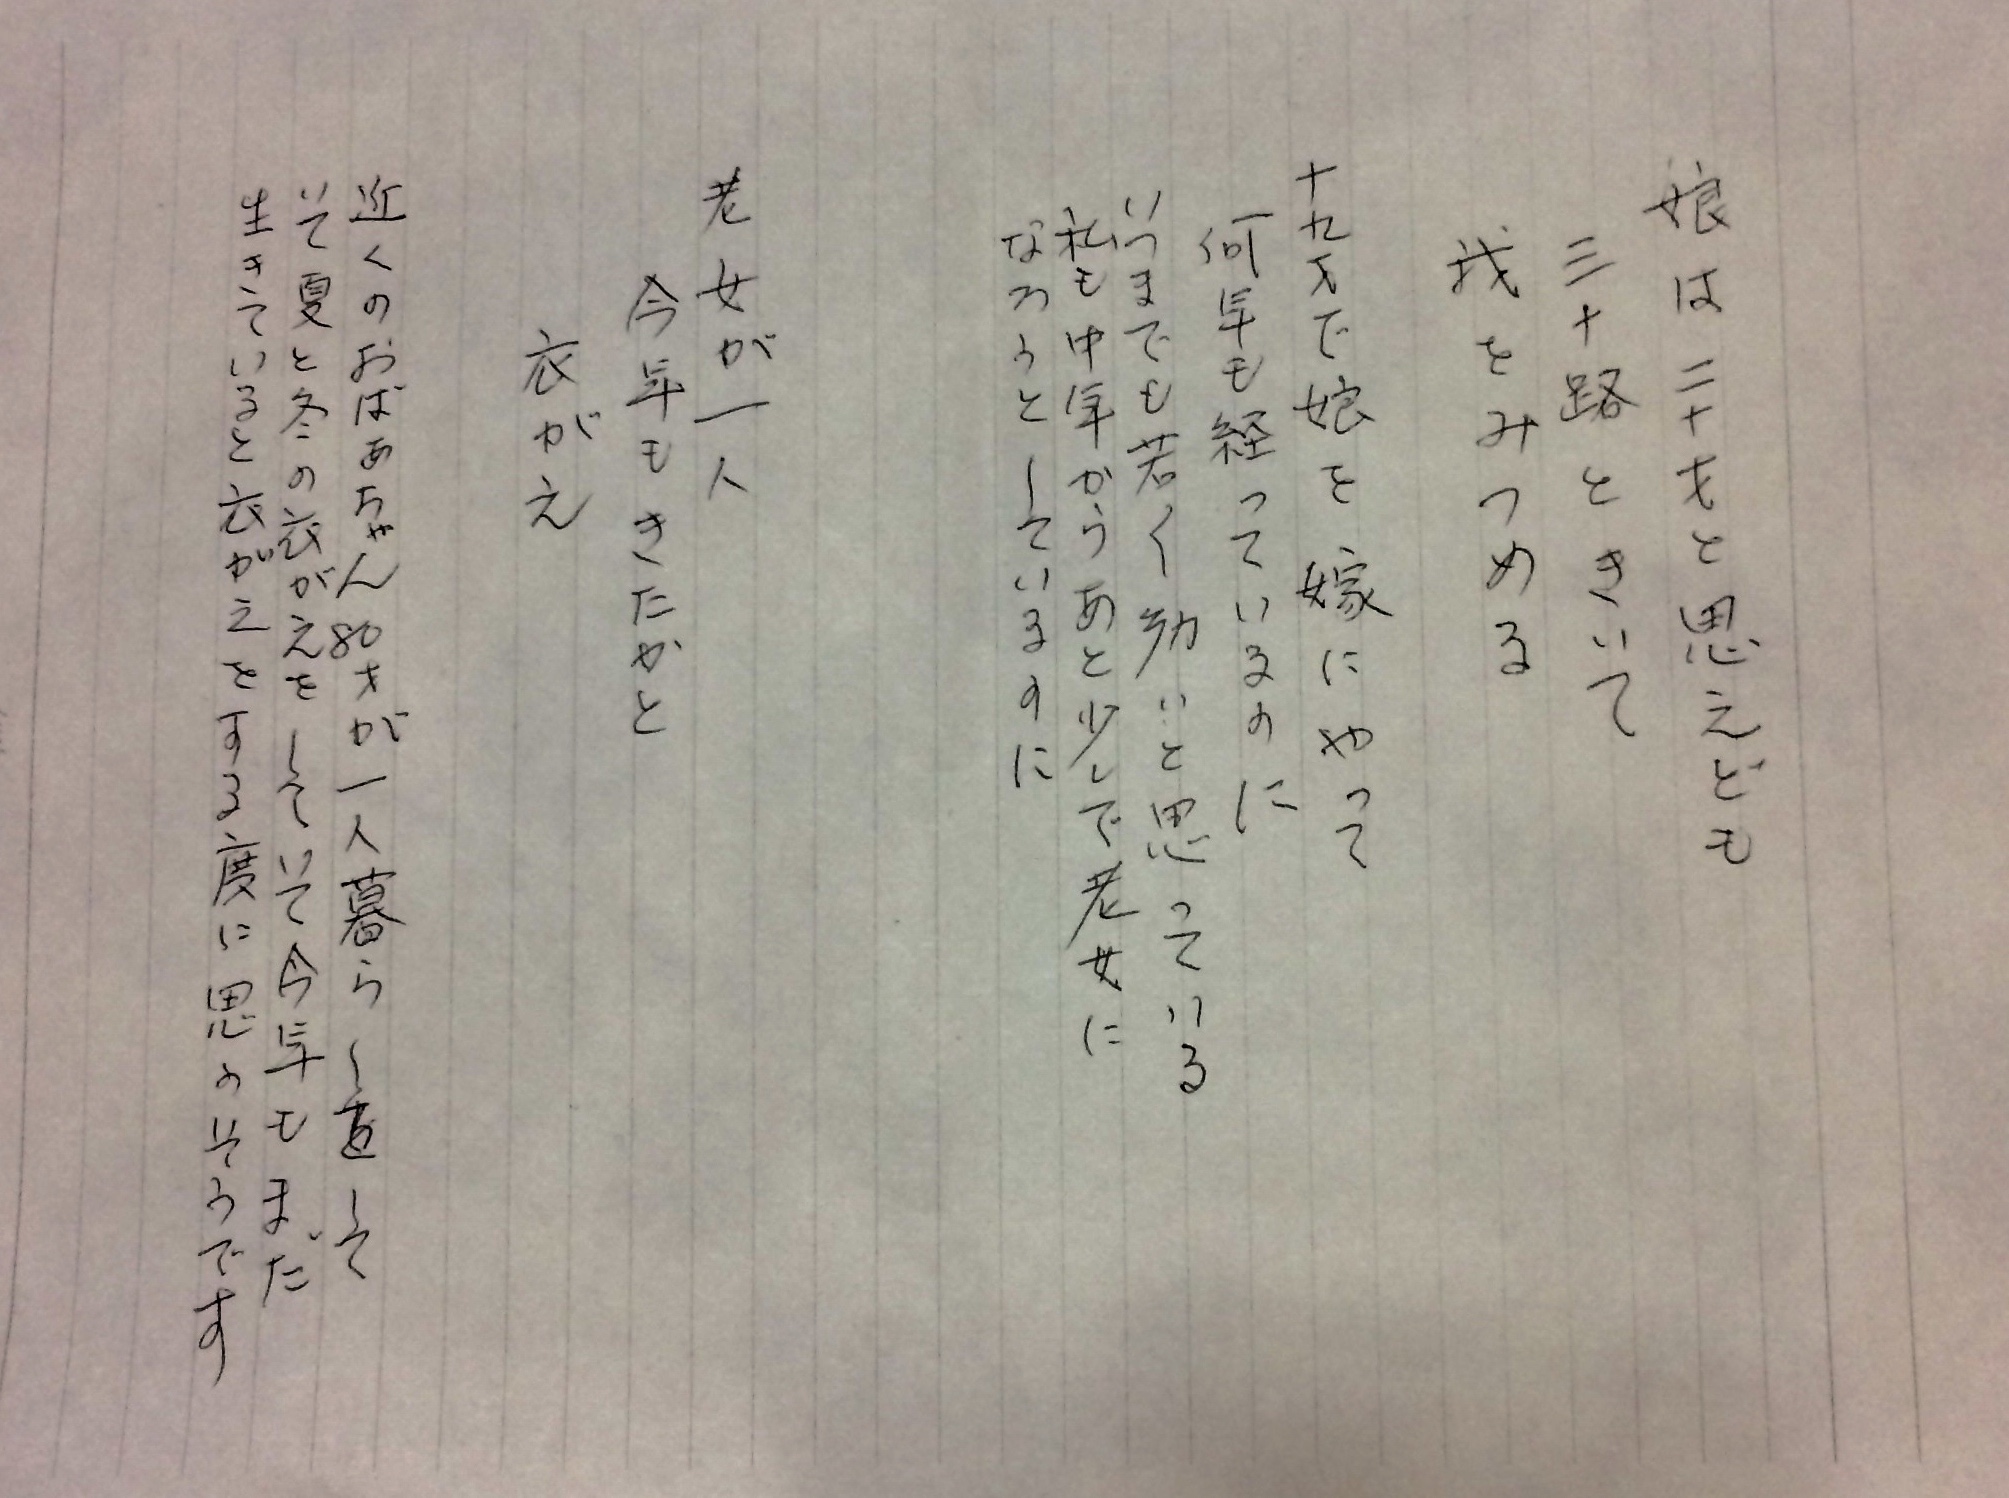 娘は二十才と思えども
三十路ときいて
我をみつめる
十九才で娘を嫁にやって
何年も経っているのに
いつまでも若く幼いと思っている
私も中年からあと少しで老女に
なろうとしているのに
老女が一人
今年もきたかと
衣がえ
近くのおばあちゃん80才が一人暮らし直して
いて夏と冬の衣がえをしていて今年もまだ
生きていると衣がえをする度に思のいそうです